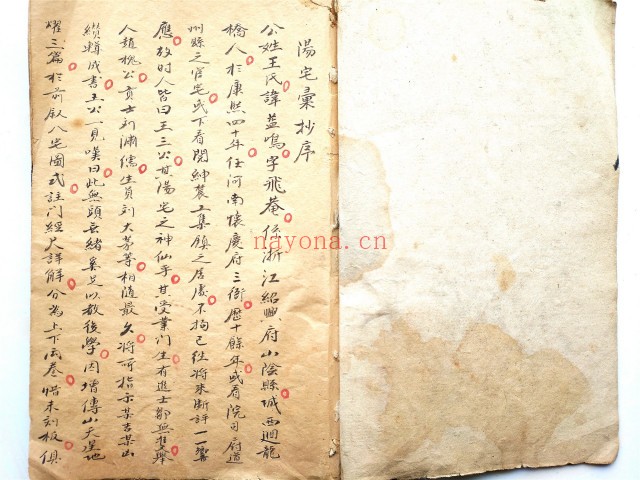 陽宅彙抄序
公姓王氏諱藎鳴字飛菴係浙江紹興府山陰縣城西迴龍
橋人於康熙四十年任河南懷慶府三衙歷十餘年或看院司府道
州縣之官宅或下看閱紳農工集鎮之居處不拘已往將來斷評一一響
應故时人皆曰王三公真陽宅之神仙乎其受業门生有進士鄒無隻舉
人趙槐公貢士刘潚儒生員刘大等相隨最久將所指示某吉某凶
纘輯成書王公一見嘆曰此無頭无緒奚足以教後學因增傳山天星地
曜三篇於前叙八宅圖式註门經尺詳解分为上下兩卷惜未刻板俱
nayona.cn